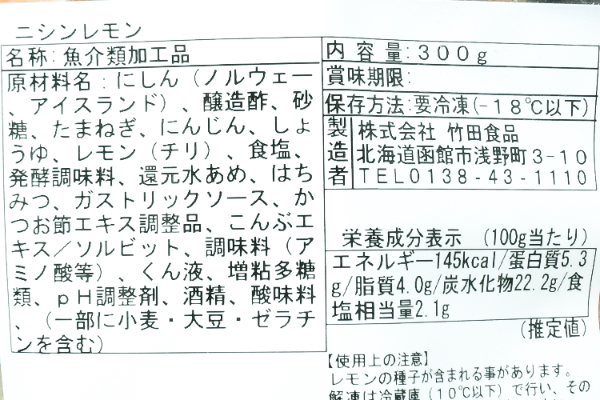 ニシンレモン
名称:魚介類加工品
原材料名:にしん（ノルウェー
、アイスランド）、醸造酢、砂
糖、たまねぎ、にんじん、しょ
うゆ、レモン（チリ）、食塩、
発酵調味料、還元水あめ、はち
みつ、ガストリックソース、か
つお節エキス調整品、こんぶエ
キス／ソルビット、調味料（ア
ミノ酸等）、くん液、増粘多糖
類、ｐＨ調整剤、酒精、酸味料
、（一部に小麦・大豆・ゼラチ
ンを含む）
内容量:３００ｇ
賞味期限:
保存方法:要冷凍(－１８℃以下)
製造者
株式会社 竹田食品
北海道函館市浅野町３－１０
ＴＥＬ０１３８－４３－１１１０
栄養成分表示 (100g当たり)
エネルギー145kcal/蛋白質5.3
g/脂質4.0g/炭水化物22.2g/食
塩相当量2.1g
(推定値)
【使用上の注意】
レモンの種子が含まれる事があります。
解凍は冷蔵庫（１０℃以下）で行い、その